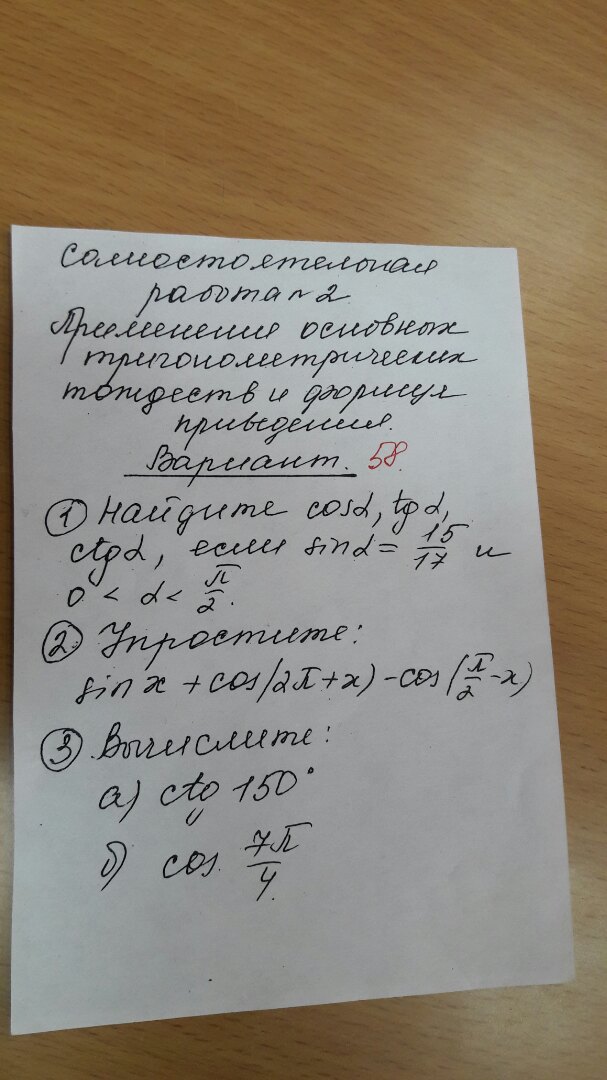 Самостоятельная
работа № 2.
Применение основных
тригонометрических
тождеств и формул
приведения.
Вариант. 58.
① Найдите cosα, tgα,
ctgα, если sinα = 15/17 и
0 < α < π/2.
② Упростите:
sin x + cos(2π + x) - cos(π/2 - x)
③ Вычислите:
а) ctg 150°
б) cos 7π/4.